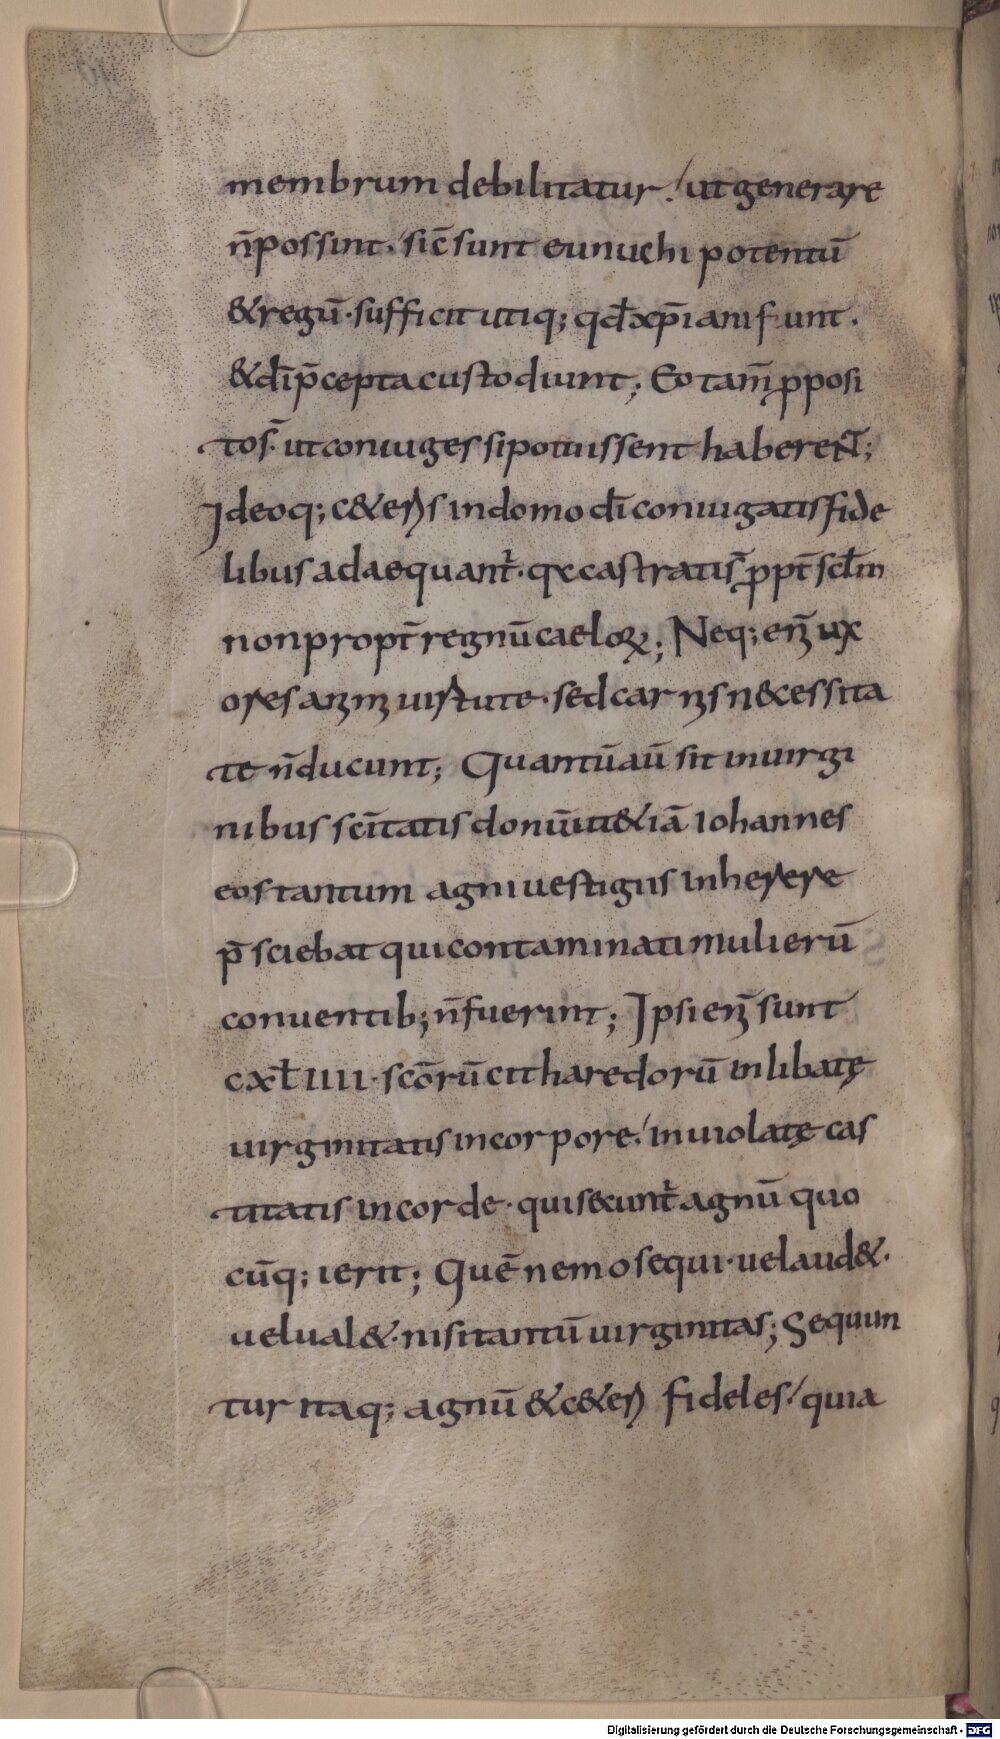 membrum debilitatur./ ut generare
n̄ possint. sic̄ sunt eunuchi potentū
& regū. sufficit utiq; qđ xp̄iani sunt.
& dī p̄cepta custodiunt; Eo tam̄ pposi
tos. ut coniuges si potuissent haberent̄;
Ideoq; c&eris in domo dī coniugatis fide
libus adaequant̄. q excastratis ppt̄ sclm
non propt̄ regnū caeloꝝ; Neq; eni̅ ux
ores animi uirtute. sed carnis n&cessita
te n̄ ducunt; Quantū aū sit in uirgi
nibus scītatis donū uti& iā Iohannes
eos tantum agni uestigiis inherere
p̄sciebat qui contaminati mulierū
conuentib; n̄ fuerint; Ipsi eni̅ sunt
cxl̄iiii. scōrū citharedorū inlibatę
uirginitatis in corpore./ inuiolatę cas
titatis in corde. qui secunt̄ agnū quo
cūq; ierit; Quē nemo sequi. uel aud&.
uel ual&. nisi tantū uirginitas; Sequun
tur itaq; agnū & c&eri fideles/ quia
Digitalisierung gefördert durch die Deutsche Forschungsgemeinschaft - DFG